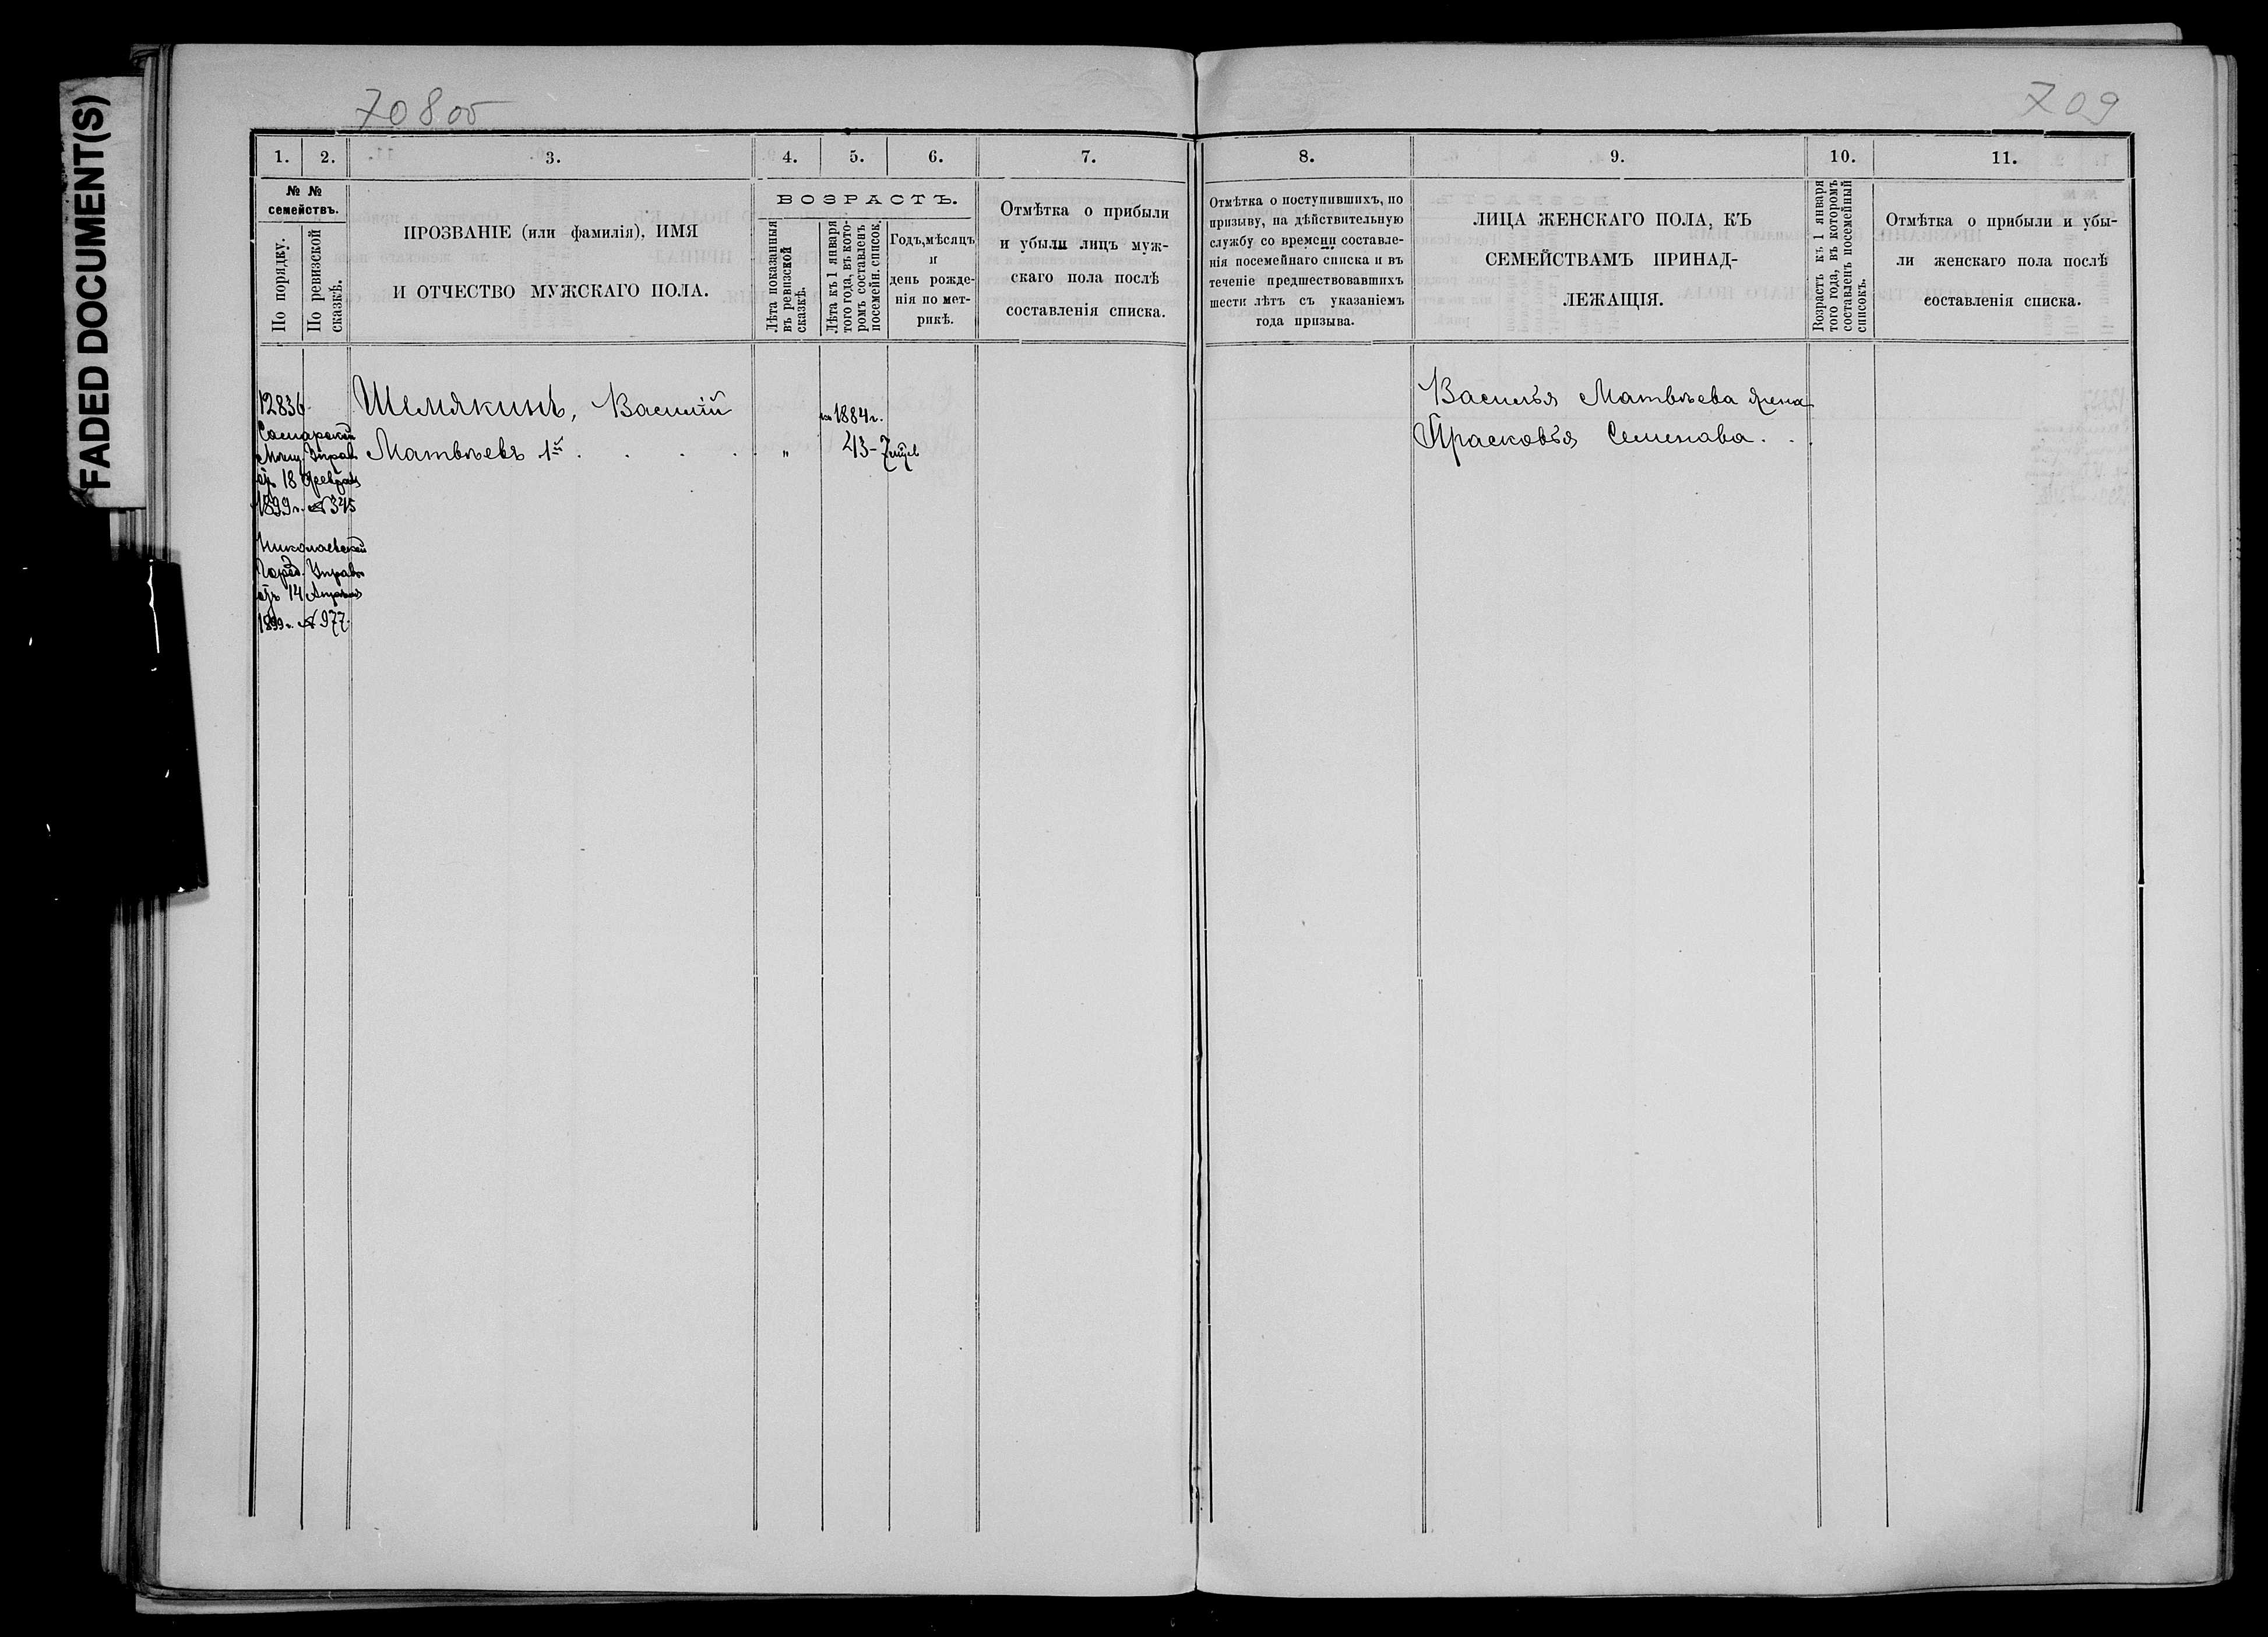 FADED DOCUMENT(S)
708об
709
1.
2.
3.
4.
5.
6.
7.
8.
9.
10.
11.
№ №
семействъ.
По порядку.
По ревизской
сказкѣ.
ПРОЗВАНІЕ (или фамилія), ИМЯ
И ОТЧЕСТВО МУЖСКАГО ПОЛА.
ВОЗРАСТЪ.
Лѣта показанныя
въ ревизской
сказкѣ.
Лѣта къ 1 января
того года, въ кото-
ромъ составленъ
посемейн. список.
Годъ, мѣсяцъ
и
день рожде-
нія по мет-
рикѣ.
Отмѣтка о прибыли
и убыли лицъ муж-
скаго пола послѣ
составленія списка.
Отмѣтка о поступившихъ, по
призыву, на дѣйствительную
службу со времени составле-
нія посемейнаго списка и въ
теченіе предшествовавшихъ
шести лѣтъ съ указаніемъ
года призыва.
ЛИЦА ЖЕНСКАГО ПОЛА, КЪ
СЕМЕЙСТВАМЪ ПРИНАД-
ЛЕЖАЩІЯ.
Возрастъ къ 1 января
того года, въ которомъ
составленъ посемейный
списокъ.
Отмѣтка о прибыли и убы-
ли женскаго пола послѣ
составленія списка.
12836
Самарской
Мѣщ. Управ.
отъ 18 Февраля
1899 г. № 345
Николаевской
Город. Управы
отъ 14 Апрѣля
1899 г. № 977.
Шемякинъ, Василій
Матвѣевъ 1й . . . .
"
1884 г.
43-7
Василья Матвѣева жена
Прасковья Семенова . .